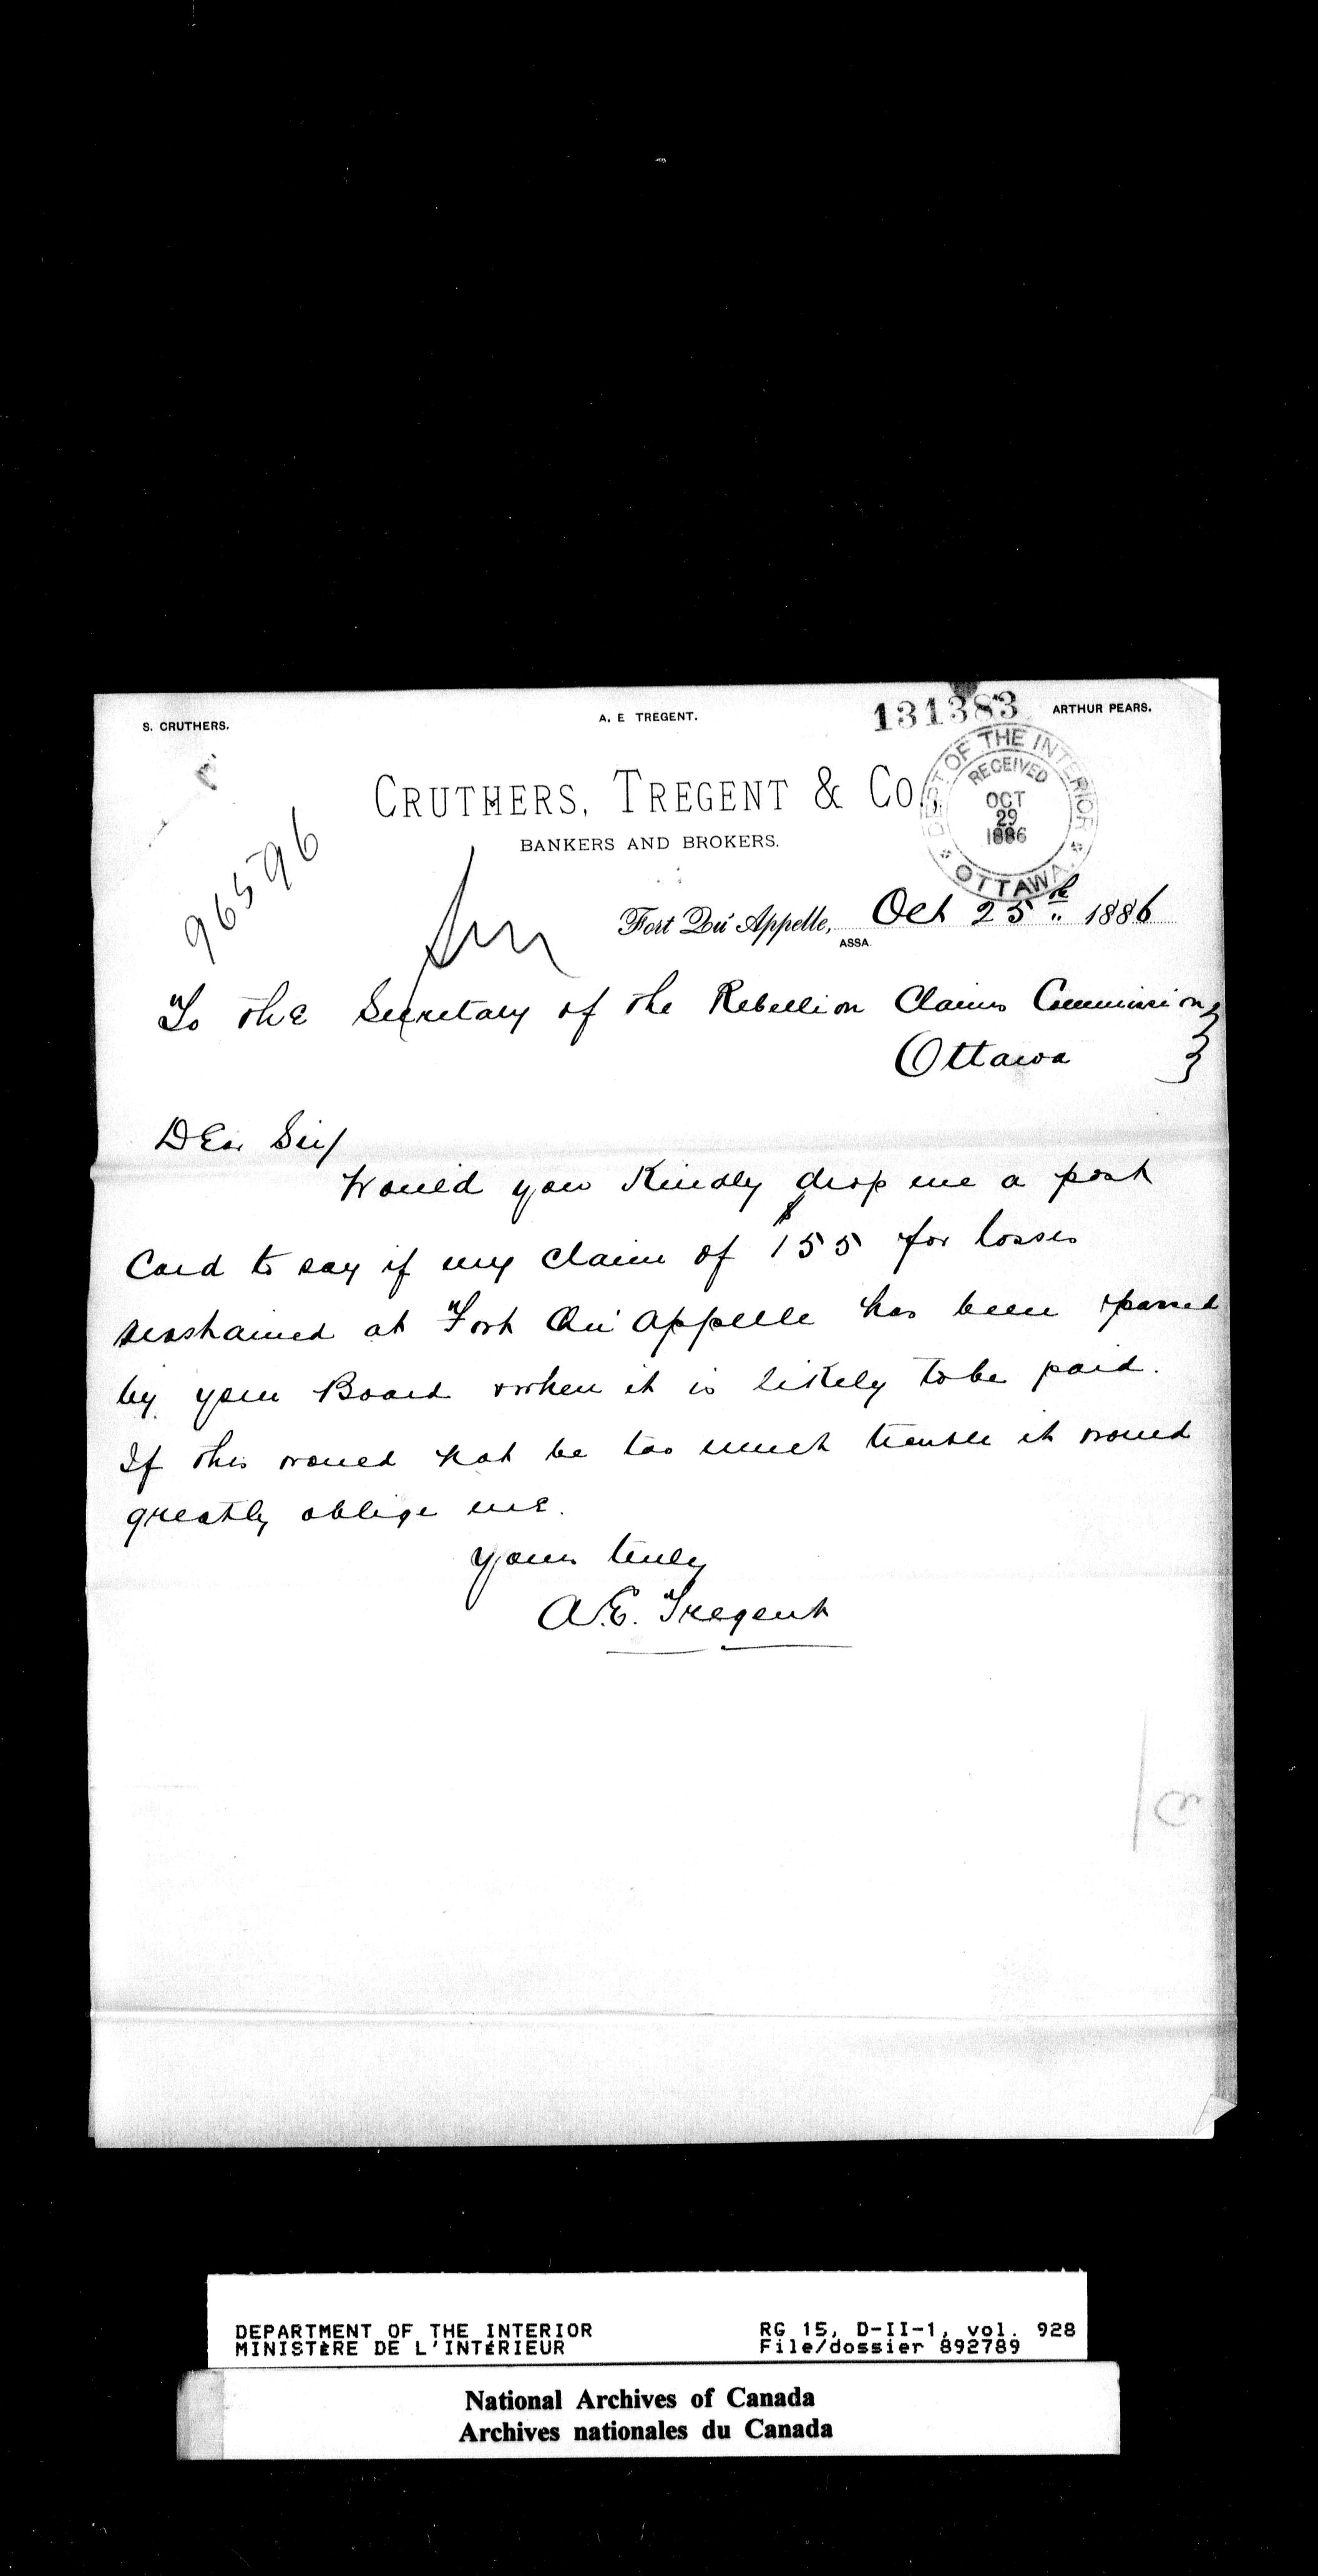 S. CRUTHERS.
A. E TREGENT.
131383
ARTHUR PEARS.
CRUTHERS, TREGENT & CO.,
BANKERS AND BROKERS.
DEPT OF THE INTERIOR
RECEIVED
OCT
29
1886
OTTAWA.
96596
Fort Qu'Appelle, Oct 25th 1886
ASSA.
To the Secretary of the Rebellion Claims Commission
Ottawa
Dear Sir/
Would you kindly drop me a post
Card to say if my claim of $155 for losses
sustained at Fort Qu'appelle has been passed
by your Board & when it is likely to be paid.
If this would not be too much trouble it would
greatly oblige me.
yours truly
A.E. Tregent
DEPARTMENT OF THE INTERIOR
MINISTÈRE DE L'INTÉRIEUR
RG 15, D-II-1, vol. 928
File/dossier 892789
National Archives of Canada
Archives nationales du Canada